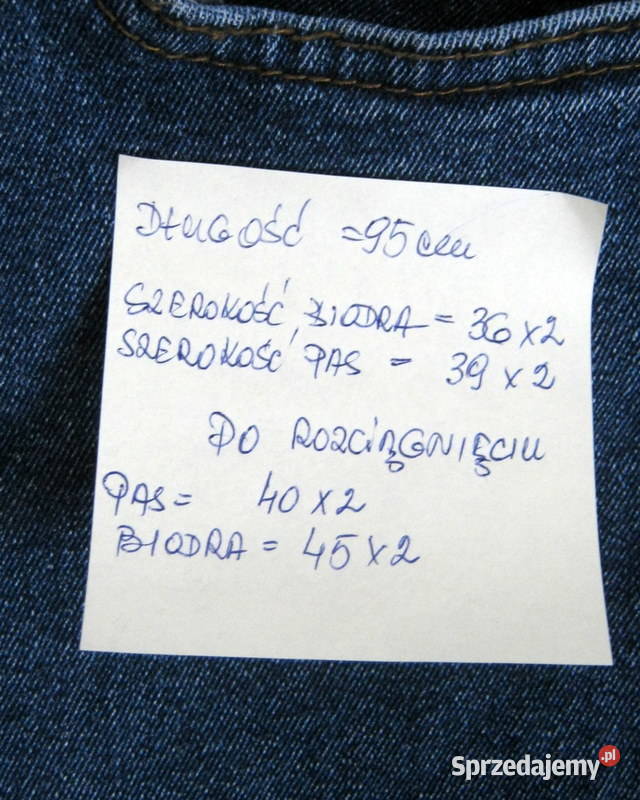 DŁUGOŚĆ =95cm
SZEROKOŚĆ BIODRA = 36 x 2
SZEROKOŚĆ PAS = 39 x 2
PO ROZCIĄGNIĘCIU
PAS = 40 x 2
BIODRA = 45 x 2
Sprzedajemy.pl